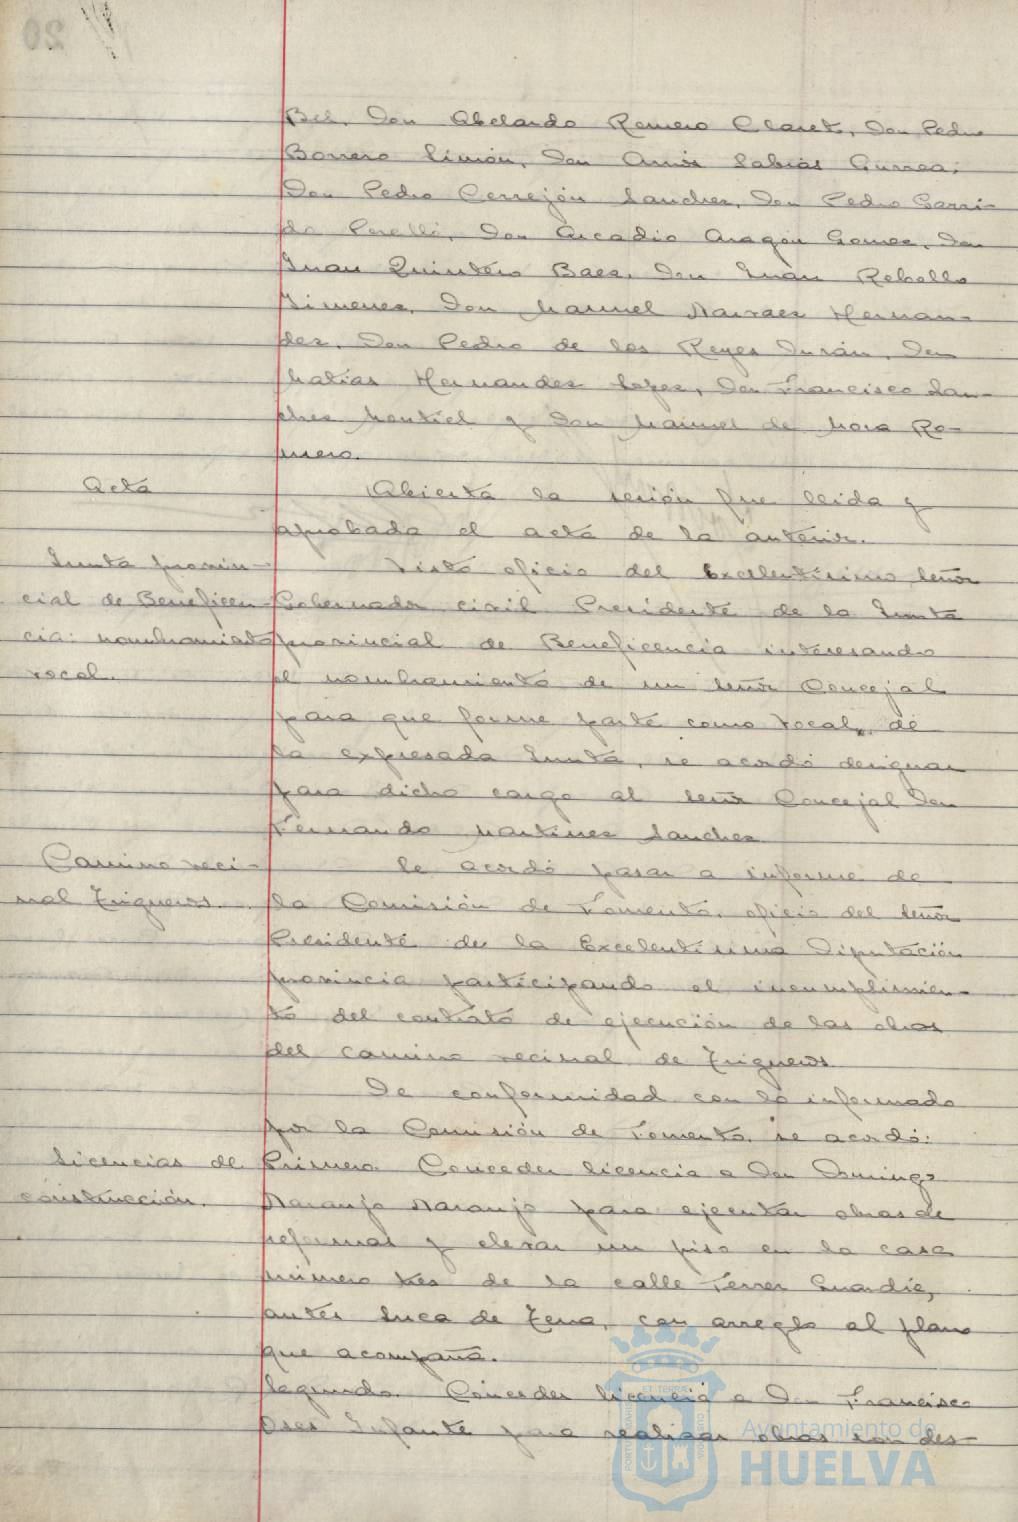 Bel, Don Abelardo Romero Claret, Don Pedro
Borrero Limón, Don Amós Sabrás Gurrea,
Don Pedro Cerrejón Sanchez, Don Pedro Garri-
do Perelló, Don Arcadio Aragón Gomez, Don
Juan Quintero Baez, Don Juan Rebollo
Jimenez, Don Manuel Narvaez Hernan-
dez, Don Pedro de los Reyes Durán, Don
Matías Hernandez Lopez, Don Francisco San-
chez Montiel y Don Manuel de Mora Ro-
mero.
Acta
Abierta la sesión fue leida y
aprobada el acta de la anterior.
Junta provin-
cial de Beneficen-
cia: nombramiento
vocal.
Visto oficio del Excelentísimo Señor
Gobernador civil Presidente de la Junta
provincial de Beneficencia interesando
el nombramiento de un Señor Concejal
para que forme parte como vocal, de
la expresada Junta, se acordó designar
para dicho cargo al Señor Concejal Don
Fernando Martinez Sanchez
Camino veci-
nal Trigueros.
Se acordó pasar a informe de
la Comisión de Fomento, oficio del Señor
Presidente de la Excelentísima Diputación
provincia participando el incumplimien-
to del contrato de ejecución de las obras
del camino vecinal de Trigueros
De conformidad con lo informado
por la Comisión de Fomento, se acordó:
Licencias de
construcción.
Primero. Conceder licencia a Don Domingo
Naranjo Naranjo para ejecutar obras de
reformas y elevar un piso en la casa
número tres de la calle Ferrer Guardia,
antes Luca de Tena, con arreglo al plano
que acompaña.
Segundo. Conceder licencia a Don Francisco
Oses Infante para realizar obras con des-
Ayuntamiento de
HUELVA